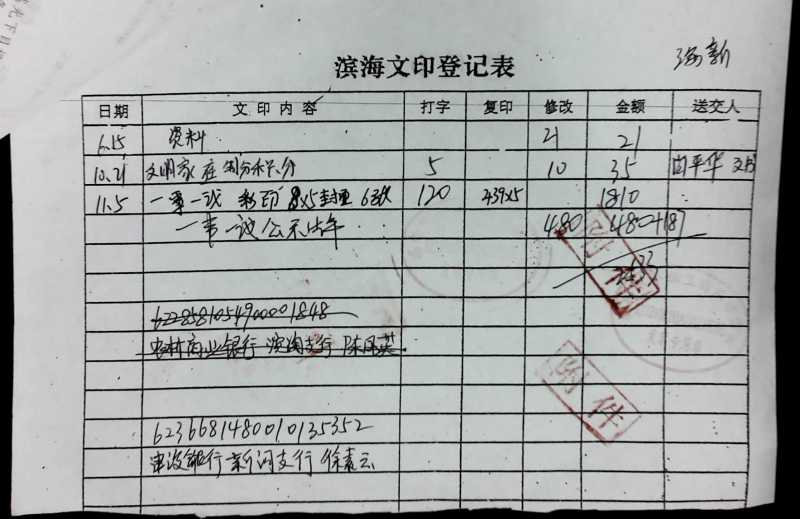 滨海文印登记表
海新
日期 文印内容 打字 复印 修改 金额 送交人
6.15 资料 21 21
10.21 文明家庭 积分 5 10 35 平华
11.5 一事一议 彩页 8x5封面 120 439x5 1810
一事一议公示 480 480+187
附件
6228581054900001848
农村商业银行 支行 陈凤英
附件
6236681480010135352
银行新河支行 徐素云